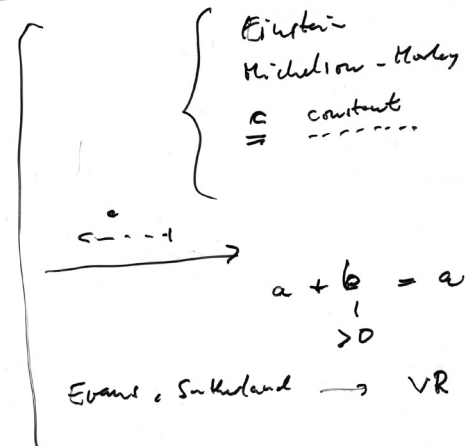 Einstein
Michelson - Morley
c constant
a + b = a
>0
Evans, Sutherland → VR